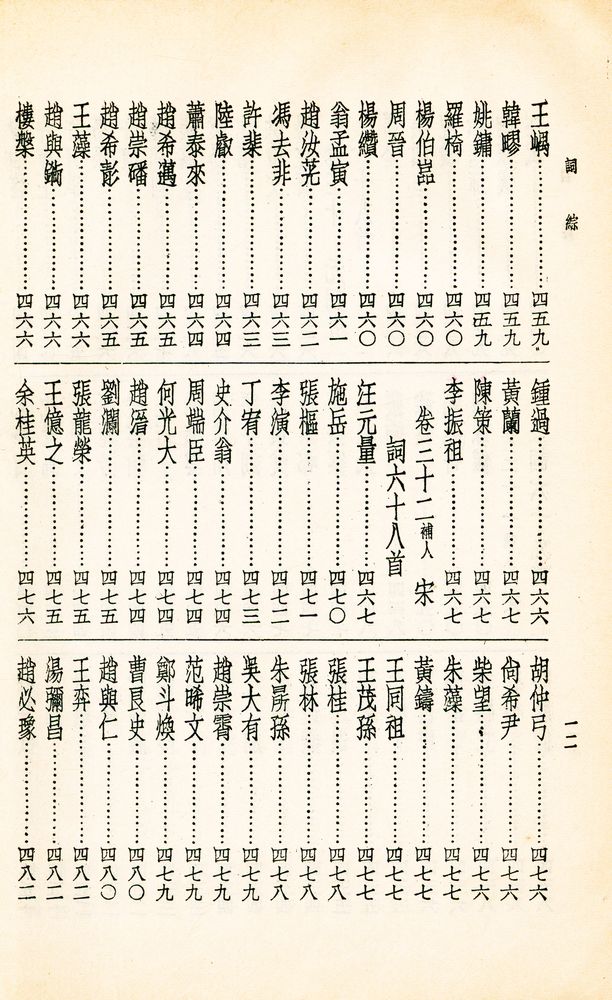 詞綜
王嵎⋯⋯⋯⋯四五九
韓疁⋯⋯⋯⋯四五九
姚鏞⋯⋯⋯⋯四五九
羅椅⋯⋯⋯⋯四六〇
楊伯嵒⋯⋯⋯⋯四六〇
周晉⋯⋯⋯⋯四六〇
楊纘⋯⋯⋯⋯四六〇
翁孟寅⋯⋯⋯⋯四六一
趙汝茪⋯⋯⋯⋯四六二
馮去非⋯⋯⋯⋯四六三
許棐⋯⋯⋯⋯四六三
陸叡⋯⋯⋯⋯四六四
蕭泰來⋯⋯⋯⋯四六四
趙希邁⋯⋯⋯⋯四六五
趙崇磻⋯⋯⋯⋯四六五
趙希彭⋯⋯⋯⋯四六五
王藻⋯⋯⋯⋯四六六
趙與鍘⋯⋯⋯⋯四六六
樓槃⋯⋯⋯⋯四六六
鍾過⋯⋯⋯⋯四六六
黃蘭⋯⋯⋯⋯四六七
陳策⋯⋯⋯⋯四六七
李振祖⋯⋯⋯⋯四六七
卷三十二補人 宋
詞六十八首
汪元量⋯⋯⋯⋯四六七
施岳⋯⋯⋯⋯四七〇
張樞⋯⋯⋯⋯四七一
李演⋯⋯⋯⋯四七二
丁宥⋯⋯⋯⋯四七三
史介翁⋯⋯⋯⋯四七四
周端臣⋯⋯⋯⋯四七四
何光大⋯⋯⋯⋯四七四
趙溍⋯⋯⋯⋯四七四
劉瀾⋯⋯⋯⋯四七五
張龍榮⋯⋯⋯⋯四七五
王億之⋯⋯⋯⋯四七五
余桂英⋯⋯⋯⋯四七六
胡仲弓⋯⋯⋯⋯四七六
尙希尹⋯⋯⋯⋯四七六
柴望⋯⋯⋯⋯四七六
朱藻⋯⋯⋯⋯四七七
黃鑄⋯⋯⋯⋯四七七
王同祖⋯⋯⋯⋯四七七
王茂孫⋯⋯⋯⋯四七七
張桂⋯⋯⋯⋯四七八
張林⋯⋯⋯⋯四七八
朱㬙孫⋯⋯⋯⋯四七八
吳大有⋯⋯⋯⋯四七九
趙崇霄⋯⋯⋯⋯四七九
范晞文⋯⋯⋯⋯四七九
鄭斗煥⋯⋯⋯⋯四七九
曹良史⋯⋯⋯⋯四八〇
趙與仁⋯⋯⋯⋯四八〇
王弈⋯⋯⋯⋯四八二
湯彌昌⋯⋯⋯⋯四八二
趙必𤩪⋯⋯⋯⋯四八二
一二